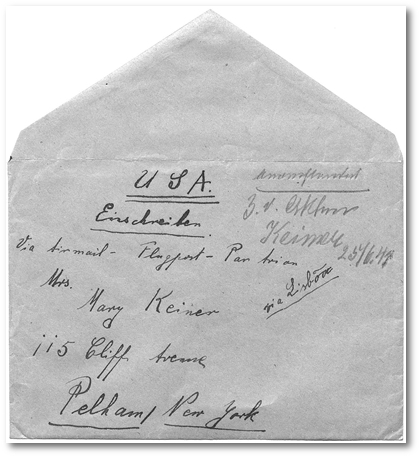 U S A.
Einschreiben
Via airmail - Flugpost - Par avion
via Lisboa
Mrs.
Mary Keiner
115 Cliff Avenue
Pelham / New York
z. d. Akten
Keiner
25/6.41